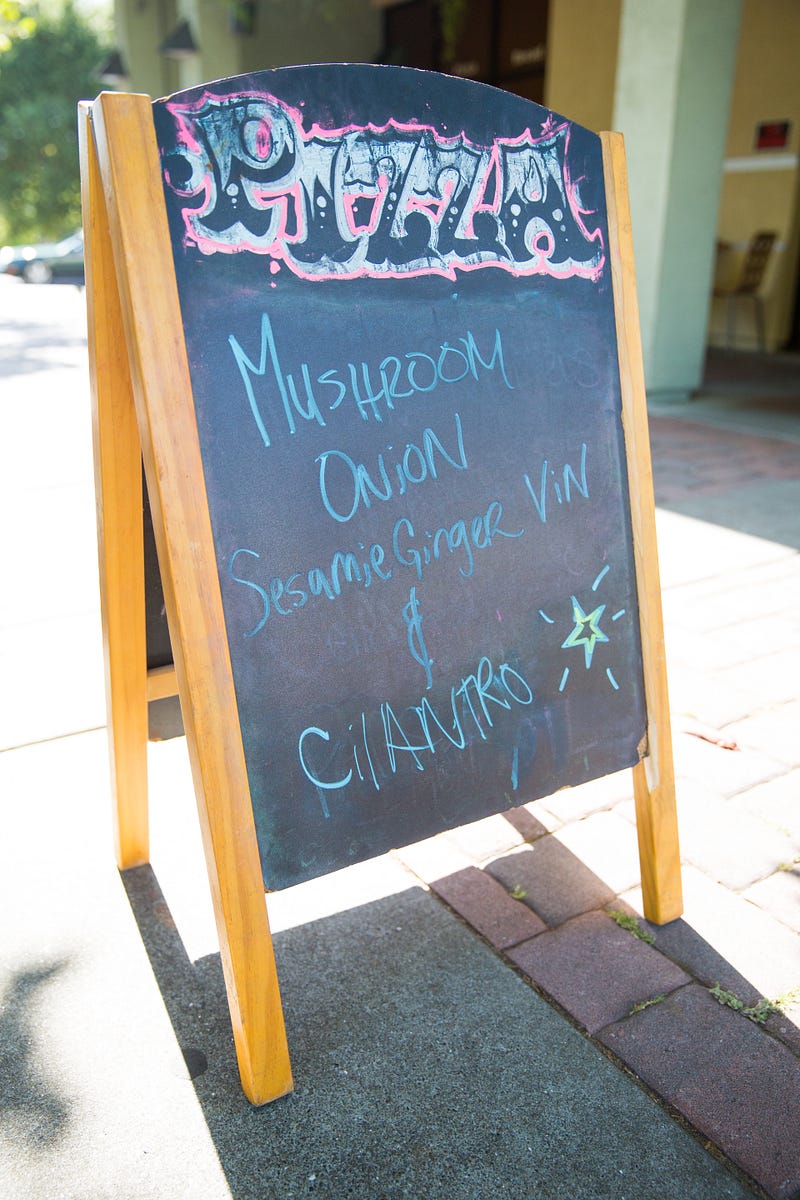 PIZZA
MUSHROOM
ONION
Sesamie Ginger ViN
&
CilANTRO